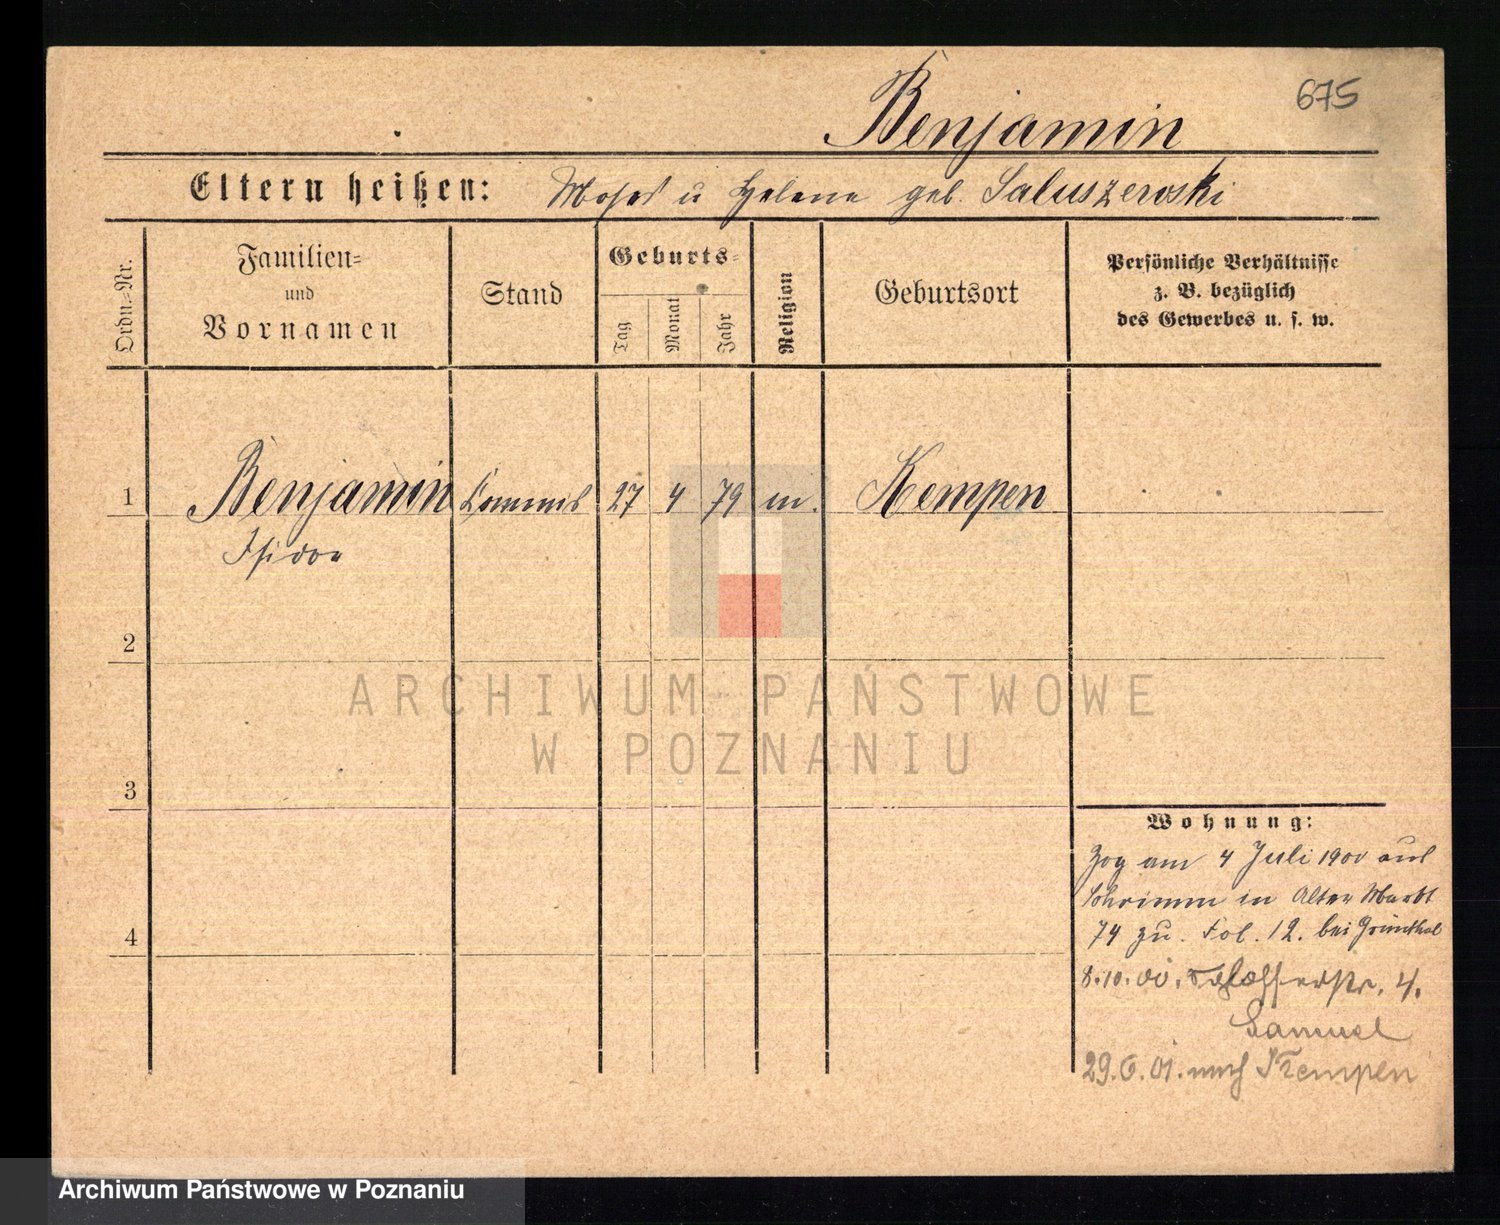 675
Benjamin
Eltern heißen: Moses u Helene geb. Saluszewski
Ordn=Nr.
Familien=
und
Vornamen
Stand
Geburts=
Tag
Monat
Jahr
Religion
Geburtsort
Persönliche Verhältnisse
z. B. bezüglich
des Gewerbes u. s. w.
1 Benjamin Commis 27 4 79 m. Kempen
Isidor
2
3
4
ARCHIWUM PAŃSTWOWE
W POZNANIU
Wohnung:
Zog am 4 Juli 1900 aus
Schrimm in Alter Markt
74 zu. Fol. 12. bei Grünthal
8.10.00. Schlosserstr. 4.
Samuel
29.6.01. nach Kempen
Archiwum Państwowe w Poznaniu